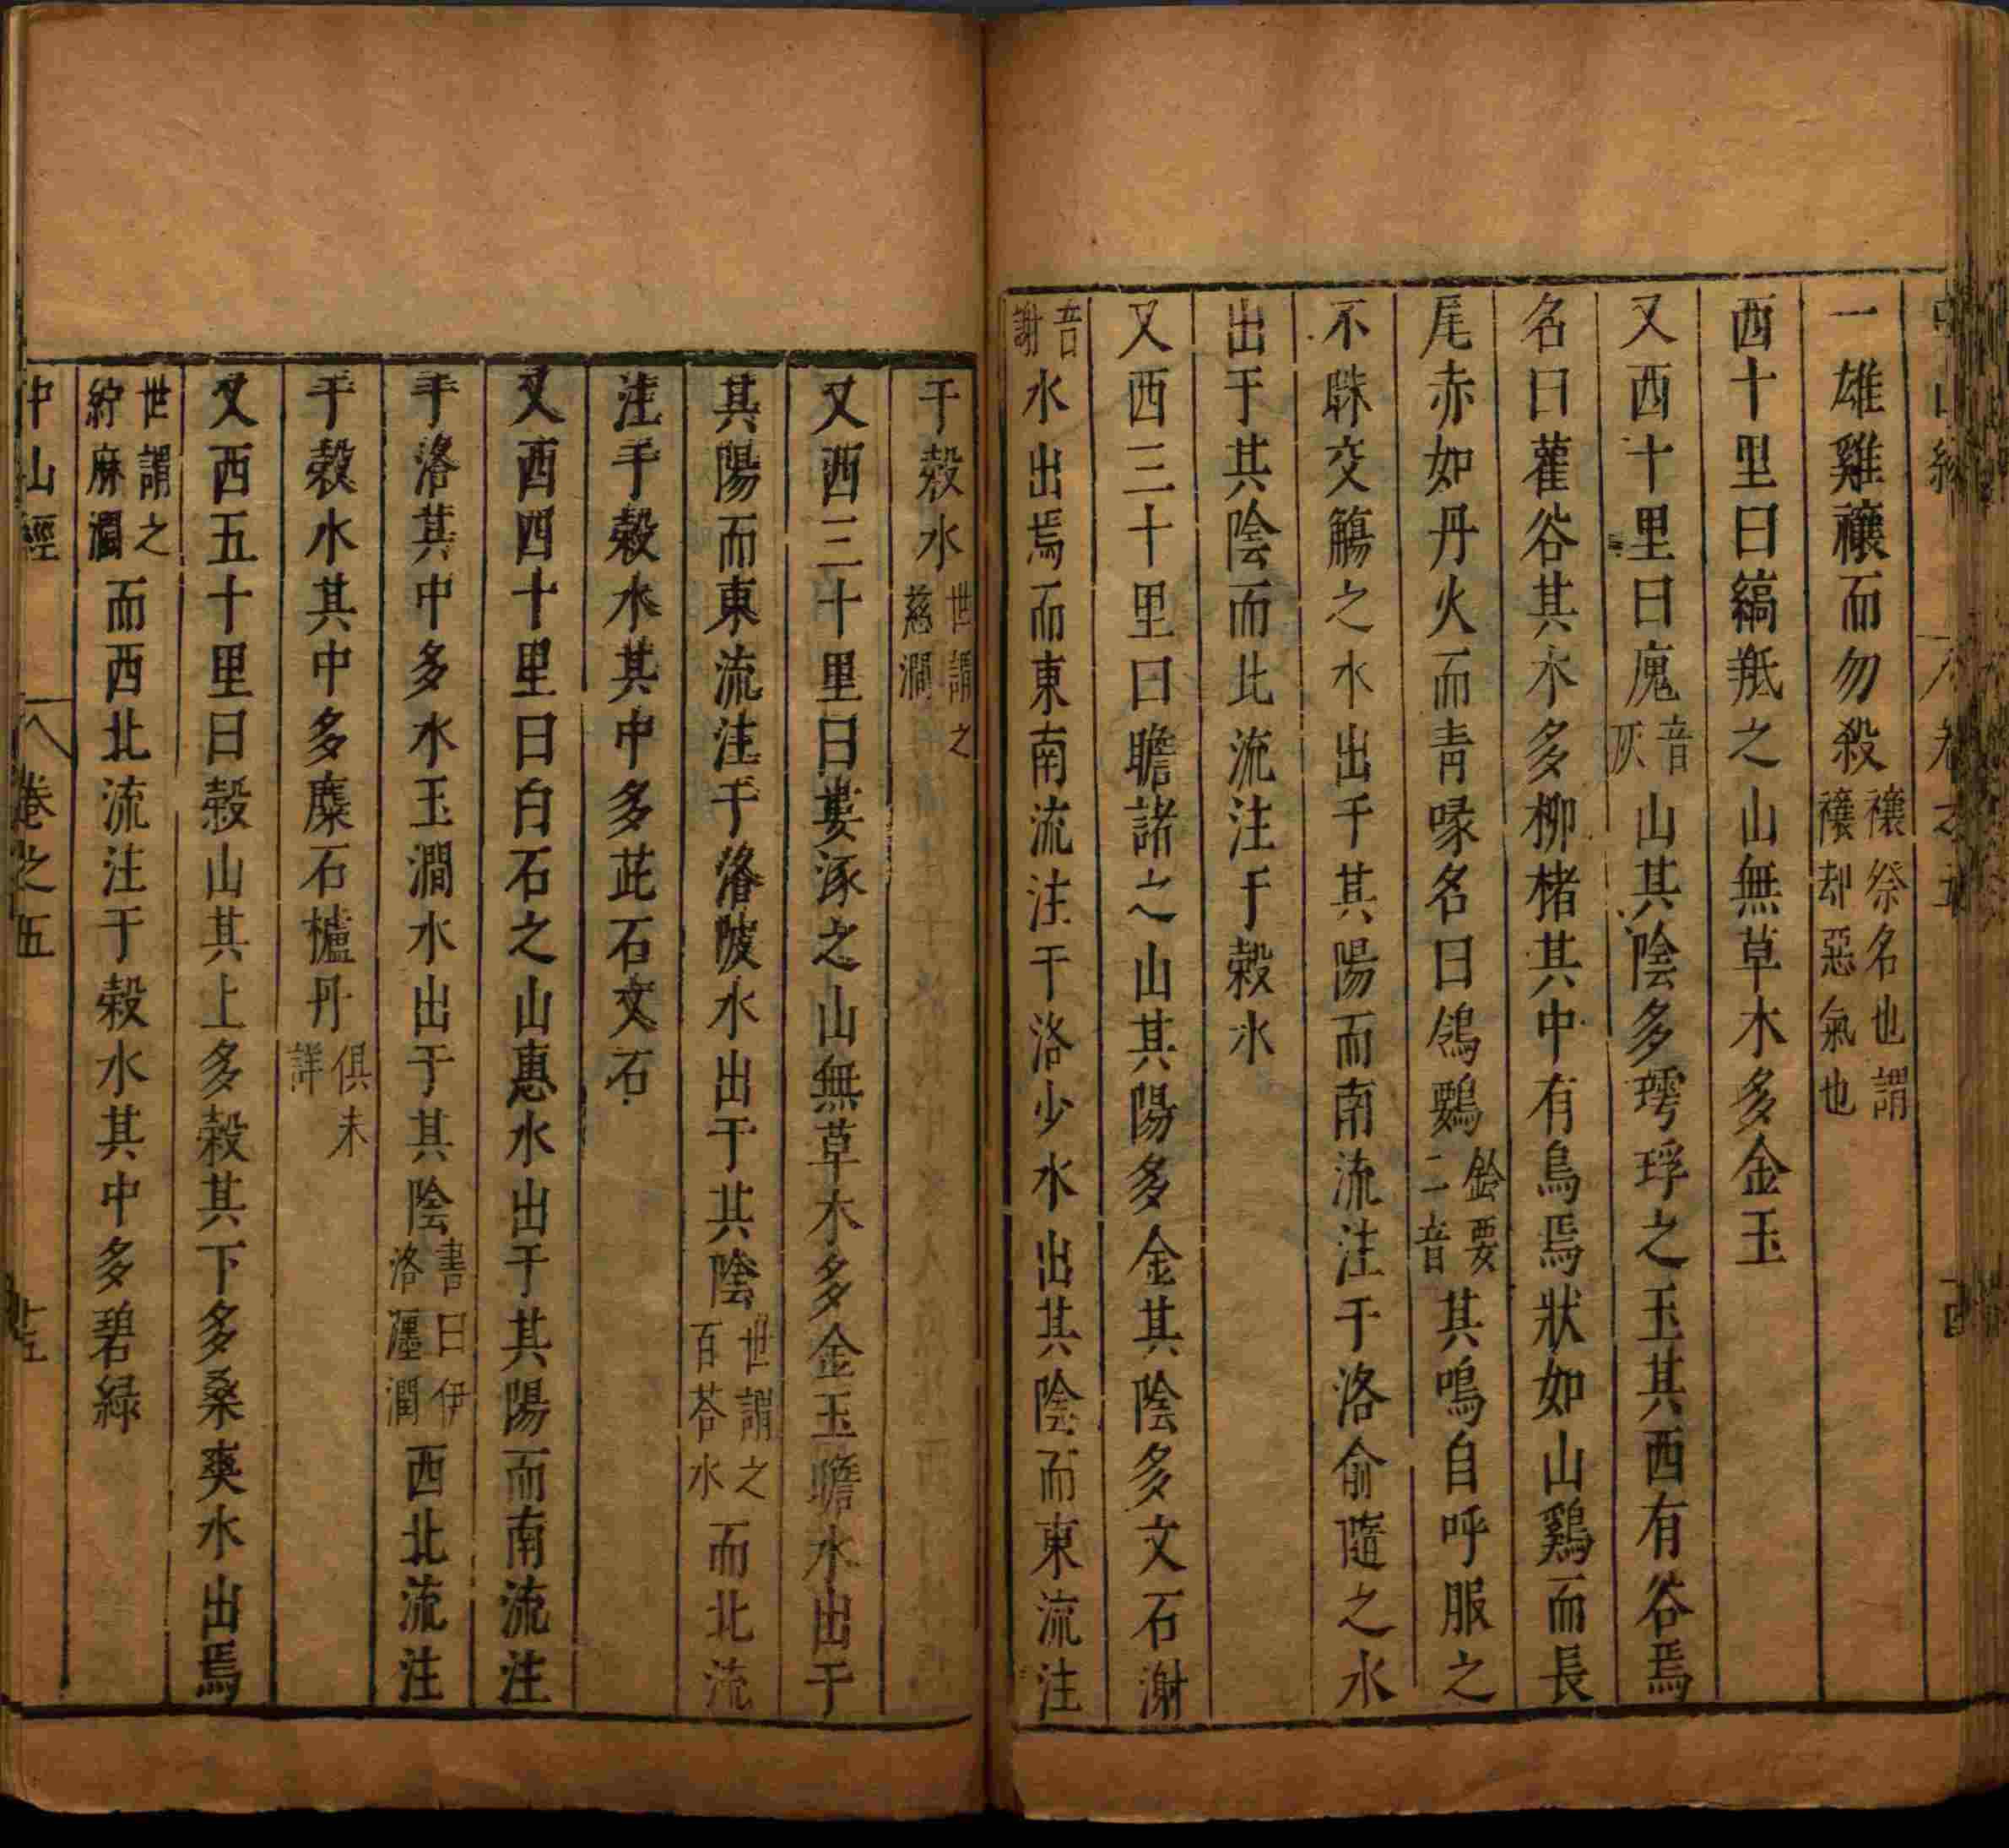 一雄雞禳而勿殺禳祭名也謂禳却惡氣也
西十里曰縞羝之山無草木多金玉
又西十里曰廆音灰山其陰多㻬琈之玉其西有谷焉
名曰雚谷其木多柳楮其中有鳥焉狀如山鷄而長
尾赤如丹火而青喙名曰鴒䳩鈴要二音其鳴自呼服之
不眯交觴之水出于其陽而南流注于洛俞隨之水
出于其陰而北流注于穀水
又西三十里曰瞻諸之山其陽多金其陰多文石㴬
音謝水出焉而東南流注于洛少水出其陰而東流注
于穀水世謂之慈澗
又西三十里曰婁涿之山無草木多金玉瞻水出于
其陽而東流注于洛陂水出于其陰世謂之百荅水而北流
注于穀水其中多茈石文石
又西四十里曰白石之山惠水出于其陽而南流注
于洛其中多水玉澗水出于其陰書曰伊洛瀍澗西北流注
于穀水其中多麋石櫨丹俱未詳
又西五十里曰穀山其上多穀其下多桑爽水出焉
世謂之紵麻澗而西北流注于穀水其中多碧緑
中山經 卷之五 十五